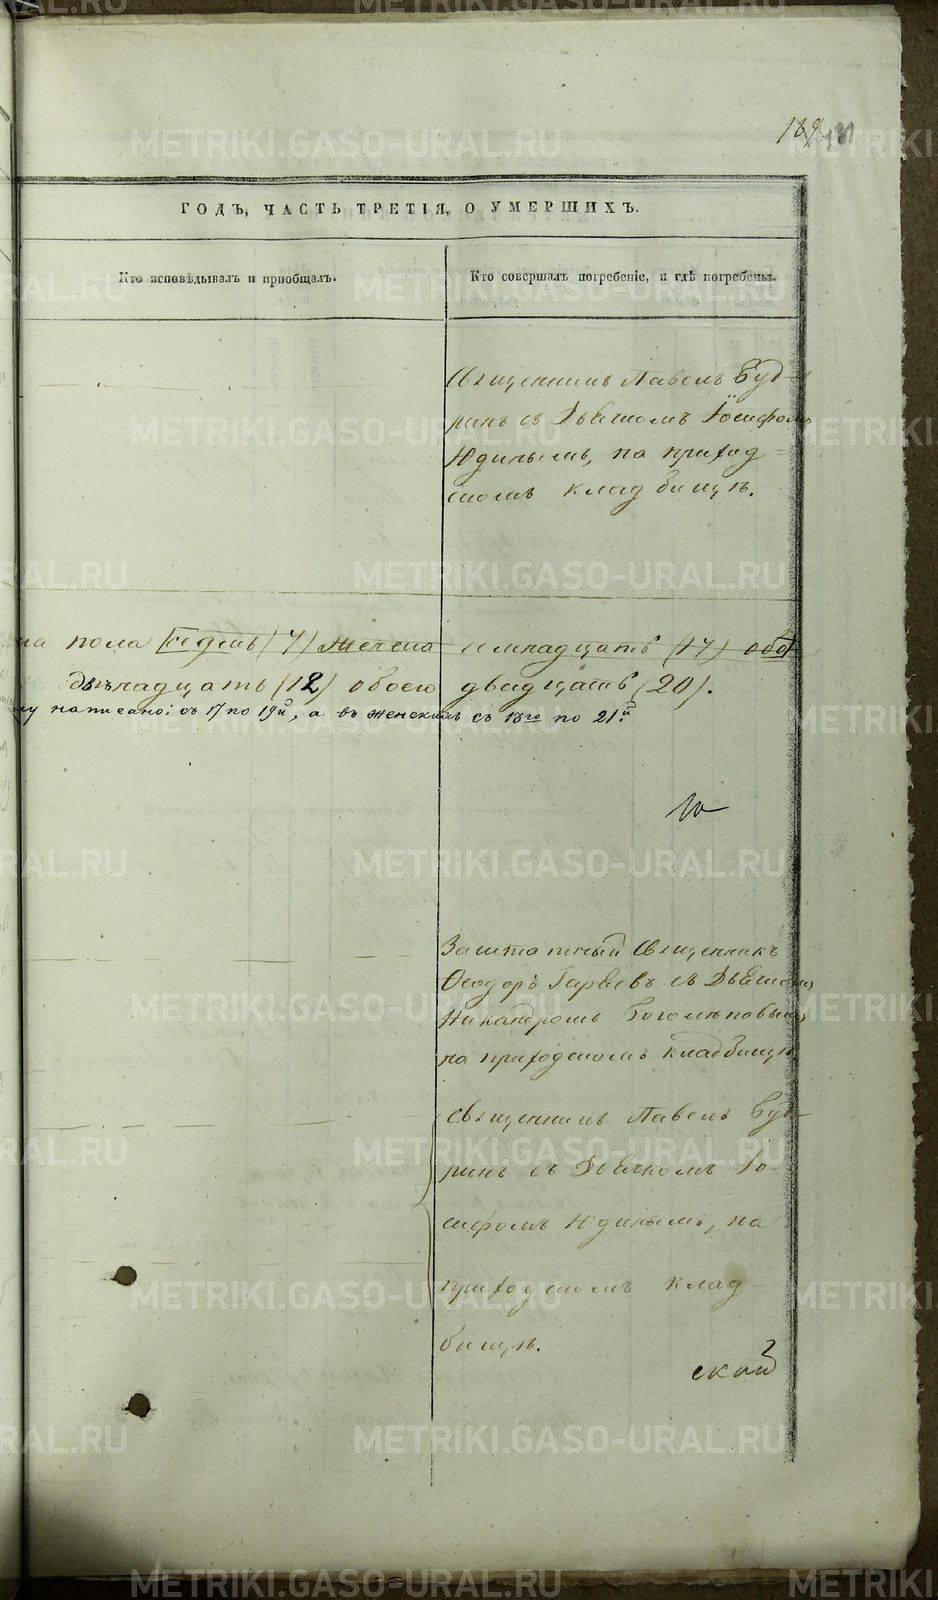 189
131
ГОДЪ, ЧАСТЬ ТРЕТІЯ, О УМЕРШИХЪ.
Кто исповѣдывалъ и пріобщалъ.
Кто совершалъ погребеніе, и гдѣ погребены.
Священникъ Павелъ Буд-
ринъ съ Дьячкомъ Іосифомъ
Юдинымъ, на приход=
скомъ кладбищѣ.
пола седмь (7) женска
семнадцать (17) обо
двѣнадцать (12) обоего двадцать (20).
написано: съ 17 по 19й, а въ женскомъ съ 18го по 21й
Заштатный Священникъ
Ѳеодоръ съ Дьячкомъ
Никандромъ Боголѣповымъ,
на приходскомъ кладбищѣ
Священникъ Павелъ Буд-
ринъ съ Дьячкомъ Іо-
сифомъ Юдинымъ, на
приходскомъ клад-
бищѣ.
ской
METRIKI.GASO-URAL.RU